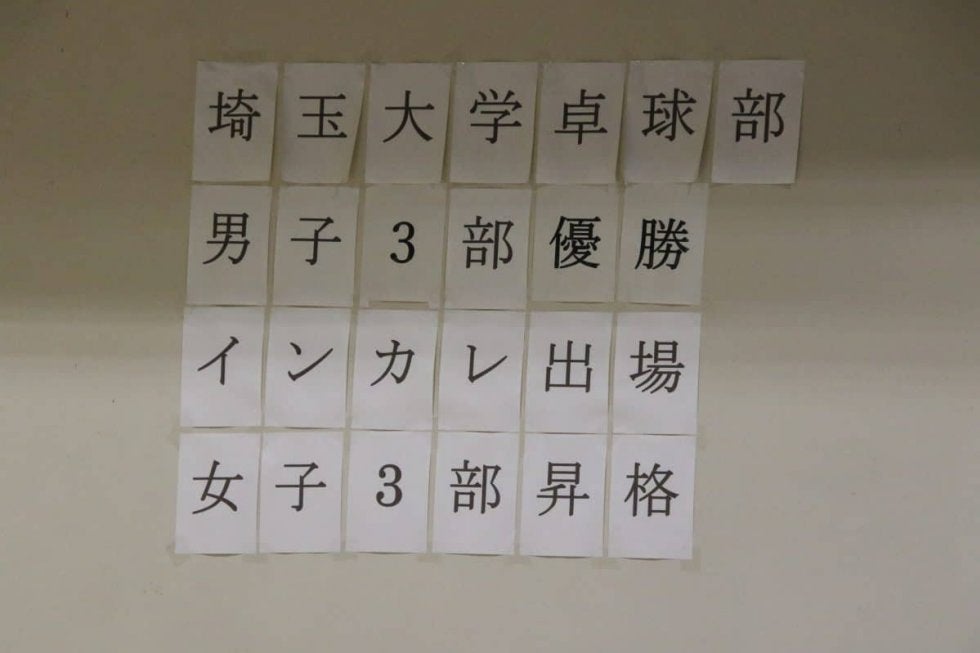 埼玉大学卓球部
男子3部優勝
インカレ出場
女子3部昇格